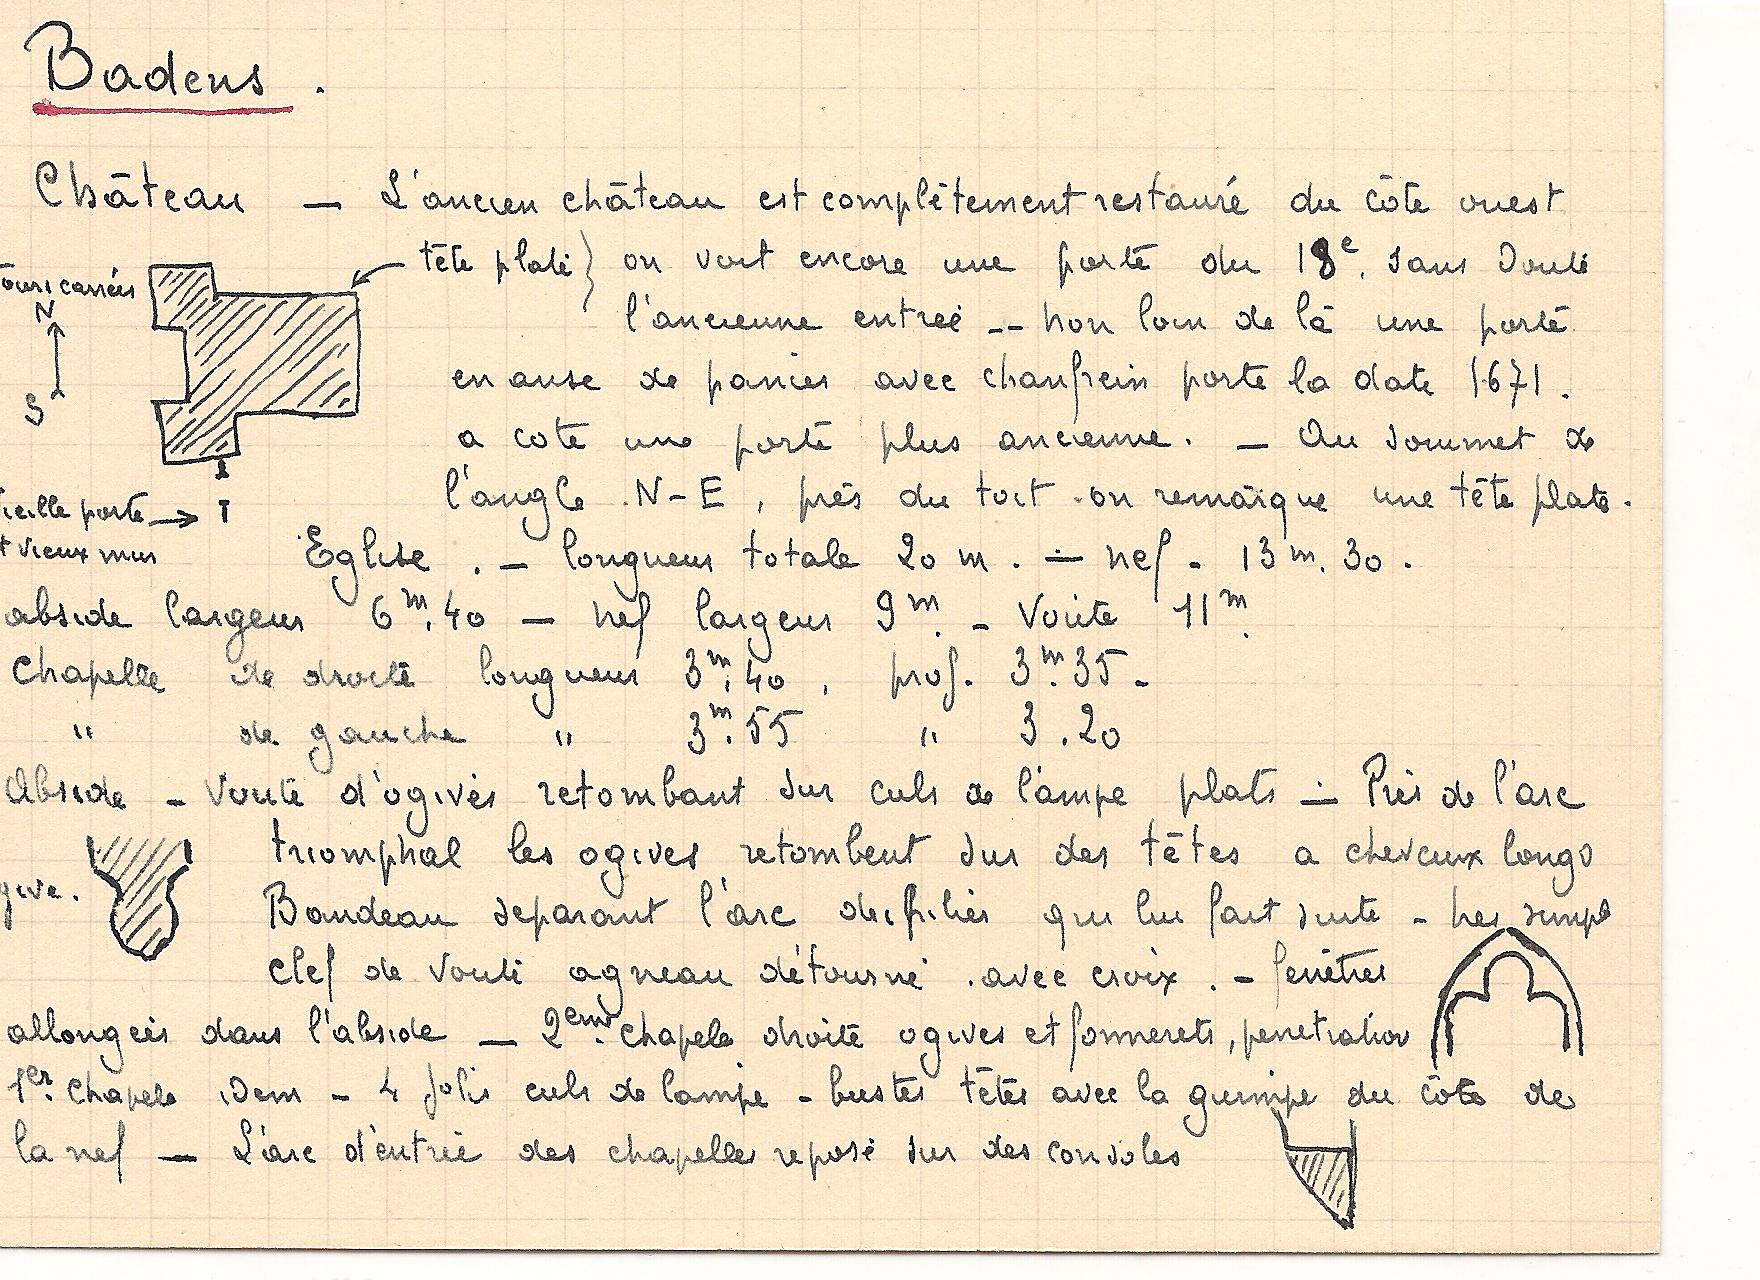 Badens.
Château — L'ancien château est complètement restauré du côte ouest
tête plate } on voit encore une porte du 18e. sans doute
ours carrées
N
l'ancienne entrée -- non loin de là une porte
en anse de panier avec chanfrein porte la date 1671.
S
a cote une porte plus ancienne. — Au sommet de
l'angle N-E, près du toit on remarque une tête plate.
ieille porte → T
t vieux mur
Eglise. — longueur totale 20 m. — nef - 13 m. 30.
abside largeur 6m.40 — nef largeur 9m. - Voute 11m.
Chapelle de droite longueur 3m.40, prof. 3m.35 -
" de gauche " 3m.55 " 3.20
Abside - Voute d'ogives retombant sur culs de lampe plats — Près de l'arc
triomphal les ogives retombent sur des têtes a cheveux longs
give.
Bandeau separant l'arc des piliers qui lui fait suite - nef simple
clef de voute agneau détourné avec croix. - fenêtres
allongées dans l'abside — 2eme chapele droite ogives et formerets, penetration
1er. Chapele idem - 4 jolis culs de lampe - bustes têtes avec la guimpe du côte de
la nef — L'arc d'entrée des chapelles repose sur des consoles